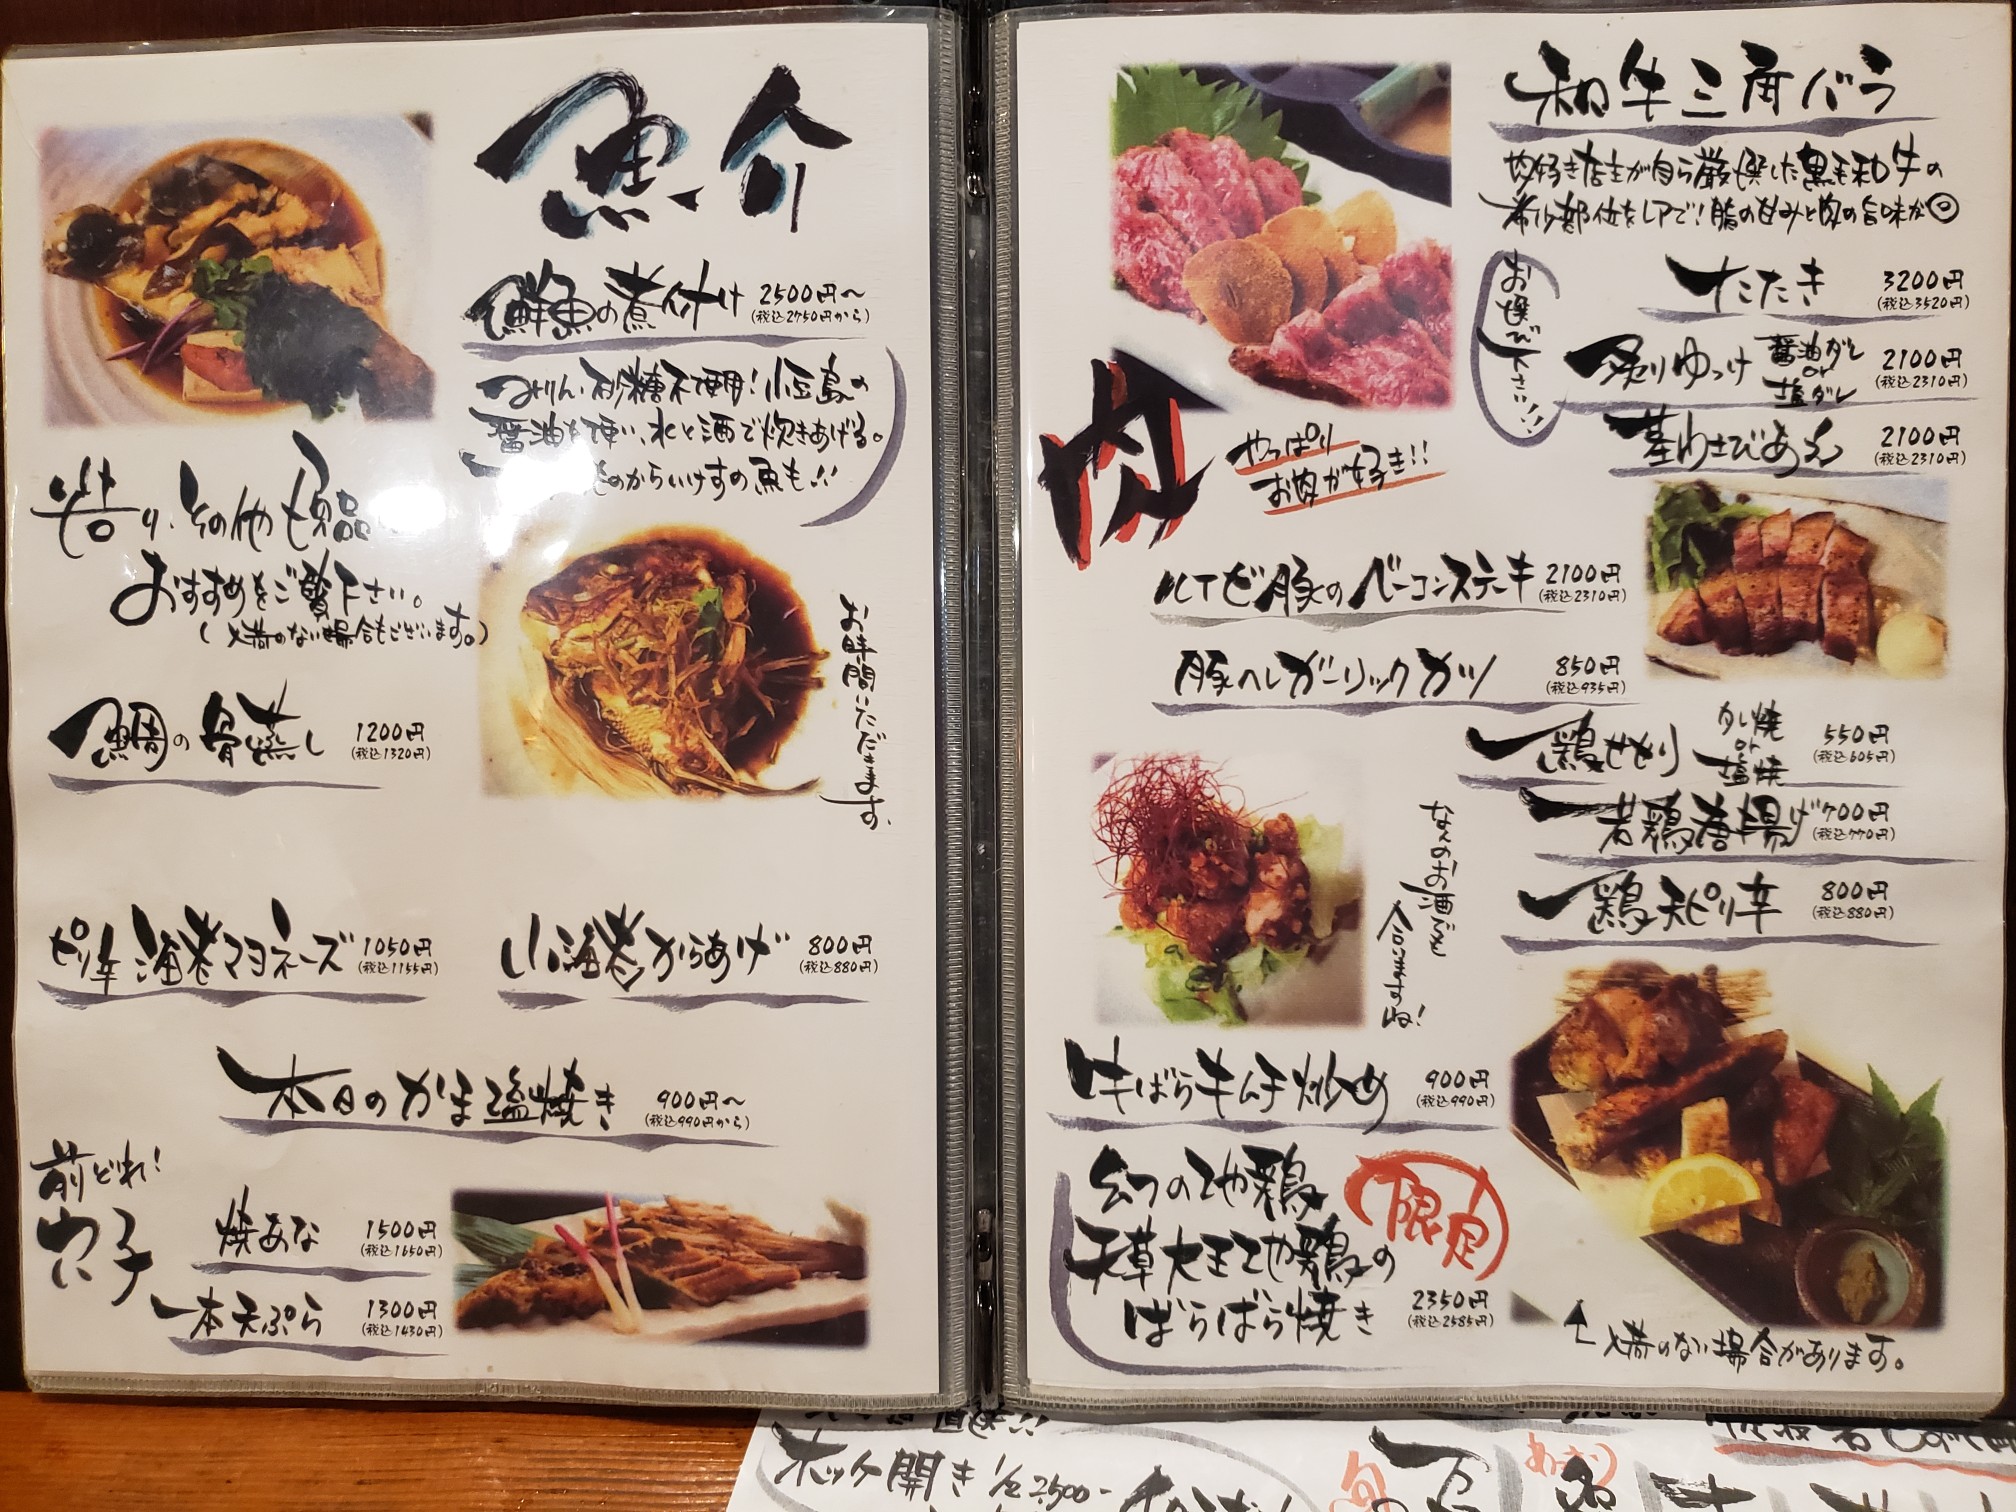 魚介
鮮魚の煮付け 2500円〜
(税込2750円から)
みりん・砂糖不使用!小豆島の
醤油を使い、水と酒で炊きあげる。
のからいけすの魚も!!
造り、その他も
おすすめをご覧下さい。
(入荷のない場合もございます。)
お時間いただきます。
鯛の骨蒸し 1200円
(税込1320円)
ピリ辛海老マヨネーズ 1050円
(税込1155円)
小海老からあげ 800円
(税込880円)
本日のかま塩焼き 900円〜
(税込990円から)
前どれ!
穴子
焼あな 1500円
(税込1650円)
一本天ぷら 1300円
(税込1430円)
和牛三角バラ
肉好き店主が自ら厳選した黒毛和牛の
希少部位をレアで!脂の甘みと肉の旨味が◎
お選び下さい!!
たたき 3200円
(税込3520円)
炙りゆっけ 醤油ダレ or 塩ダレ 2100円
(税込2310円)
茎わさびあえ 2100円
(税込2310円)
肉
やっぱり
お肉が好き!!
ルイビ豚のベーコンステーキ 2100円
(税込2310円)
豚ヘレガーリックカツ 850円
(税込935円)
鶏せせり タレ焼 or 塩焼 550円
(税込605円)
若鶏唐揚げ 700円
(税込770円)
鶏天ピリ辛 800円
(税込880円)
なんのお酒でも
合いますね!
牛ばらキムチ炒め 900円
(税込990円)
幻の地鶏
天草大王地鶏の
ばらばら焼き 2350円
(税込2585円)
限定
入荷のない場合があります。
直送!!
ホッケ開き 1/2 2,500-